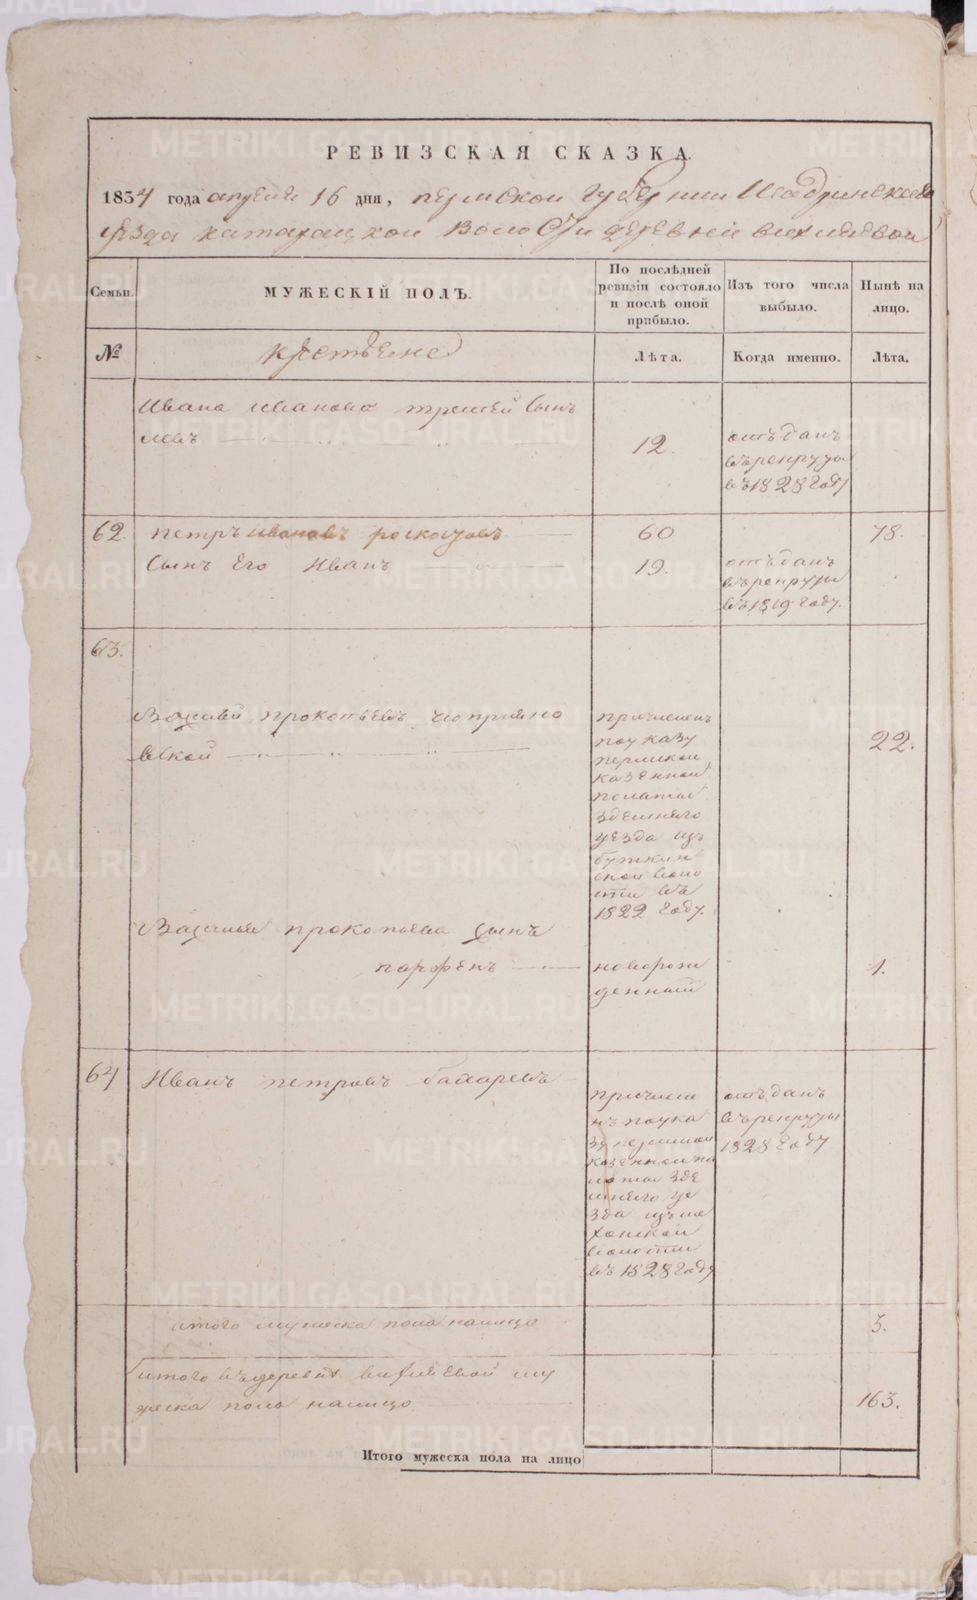 РЕВИЗСКАЯ СКАЗКА.
1834 года апреля 16 дня, пермской губернии Шадринскаго
уезда катайской волости деревни
Семьи.
МУЖЕСКІЙ ПОЛЪ.
По послѣдней ревизіи состояло и послѣ оной прибыло.
Изъ того числа выбыло.
Нынѣ на лицо.
№
крестьяне
Лѣта.
Когда именно.
Лѣта.
Ивана иванова третей сынъ
левъ
12.
отъданъ
въ рекруты
въ 1828 году
62.
петръ ивановъ
60
78.
Сынъ Его Иванъ
19.
отъданъ
въ рекруты
въ 1819 году.
63.
Василей прокопьевъ
22.
причисленъ
по указу
пермской
казенной
палаты
здешняго
уезда изъ
волости въ
1822 году.
Василья прокопьева сынъ
парфенъ
новорож
денный
1.
64
Иванъ петровъ
причисле
нъ по ука
зу пермской
казенной па
латы зде
шняго уе
зда изъ
волости
въ 1828 году
отъданъ
въ рекруты
1828 году
итого мужеска пола налицо
3.
итого въ деревне му
жеска пола налицо
163.
Итого мужеска пола на лицо
METRIKI.GASO-URAL.RU